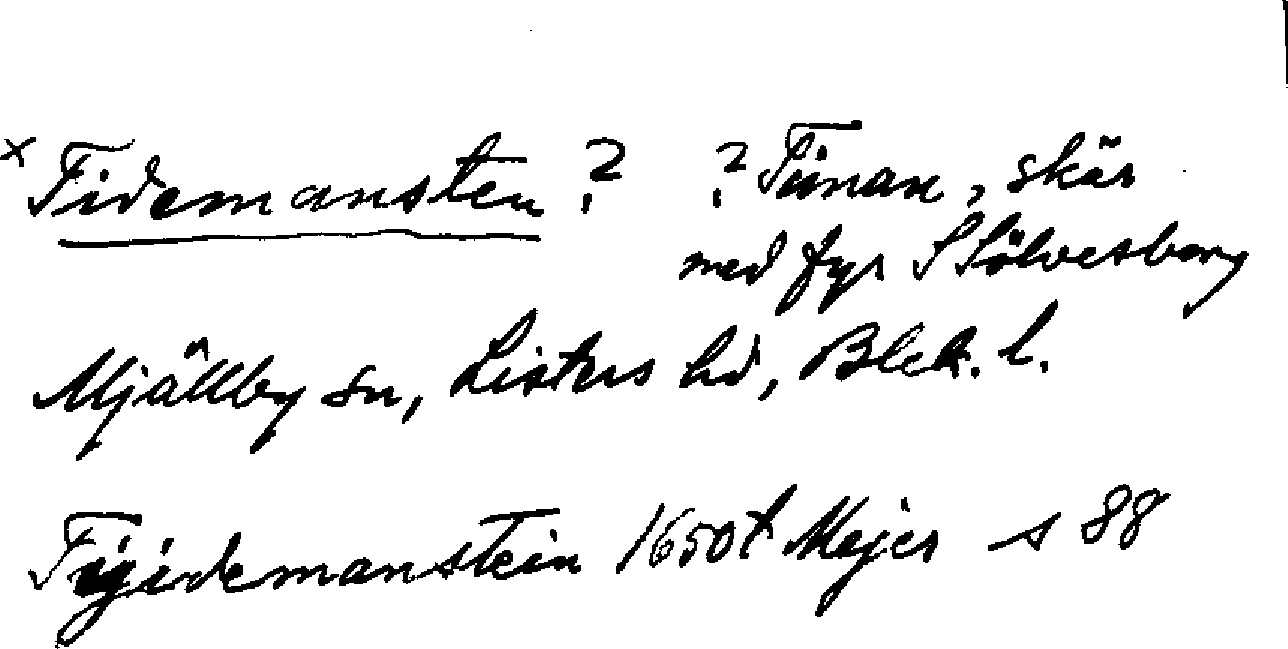 × Tidemansten ? ? Tiinan, skär
med fyr S Sölvesborg
Mjällby sn, Listers hd, Blek. l.
Tijidemanstein 1650t Mejer s 88